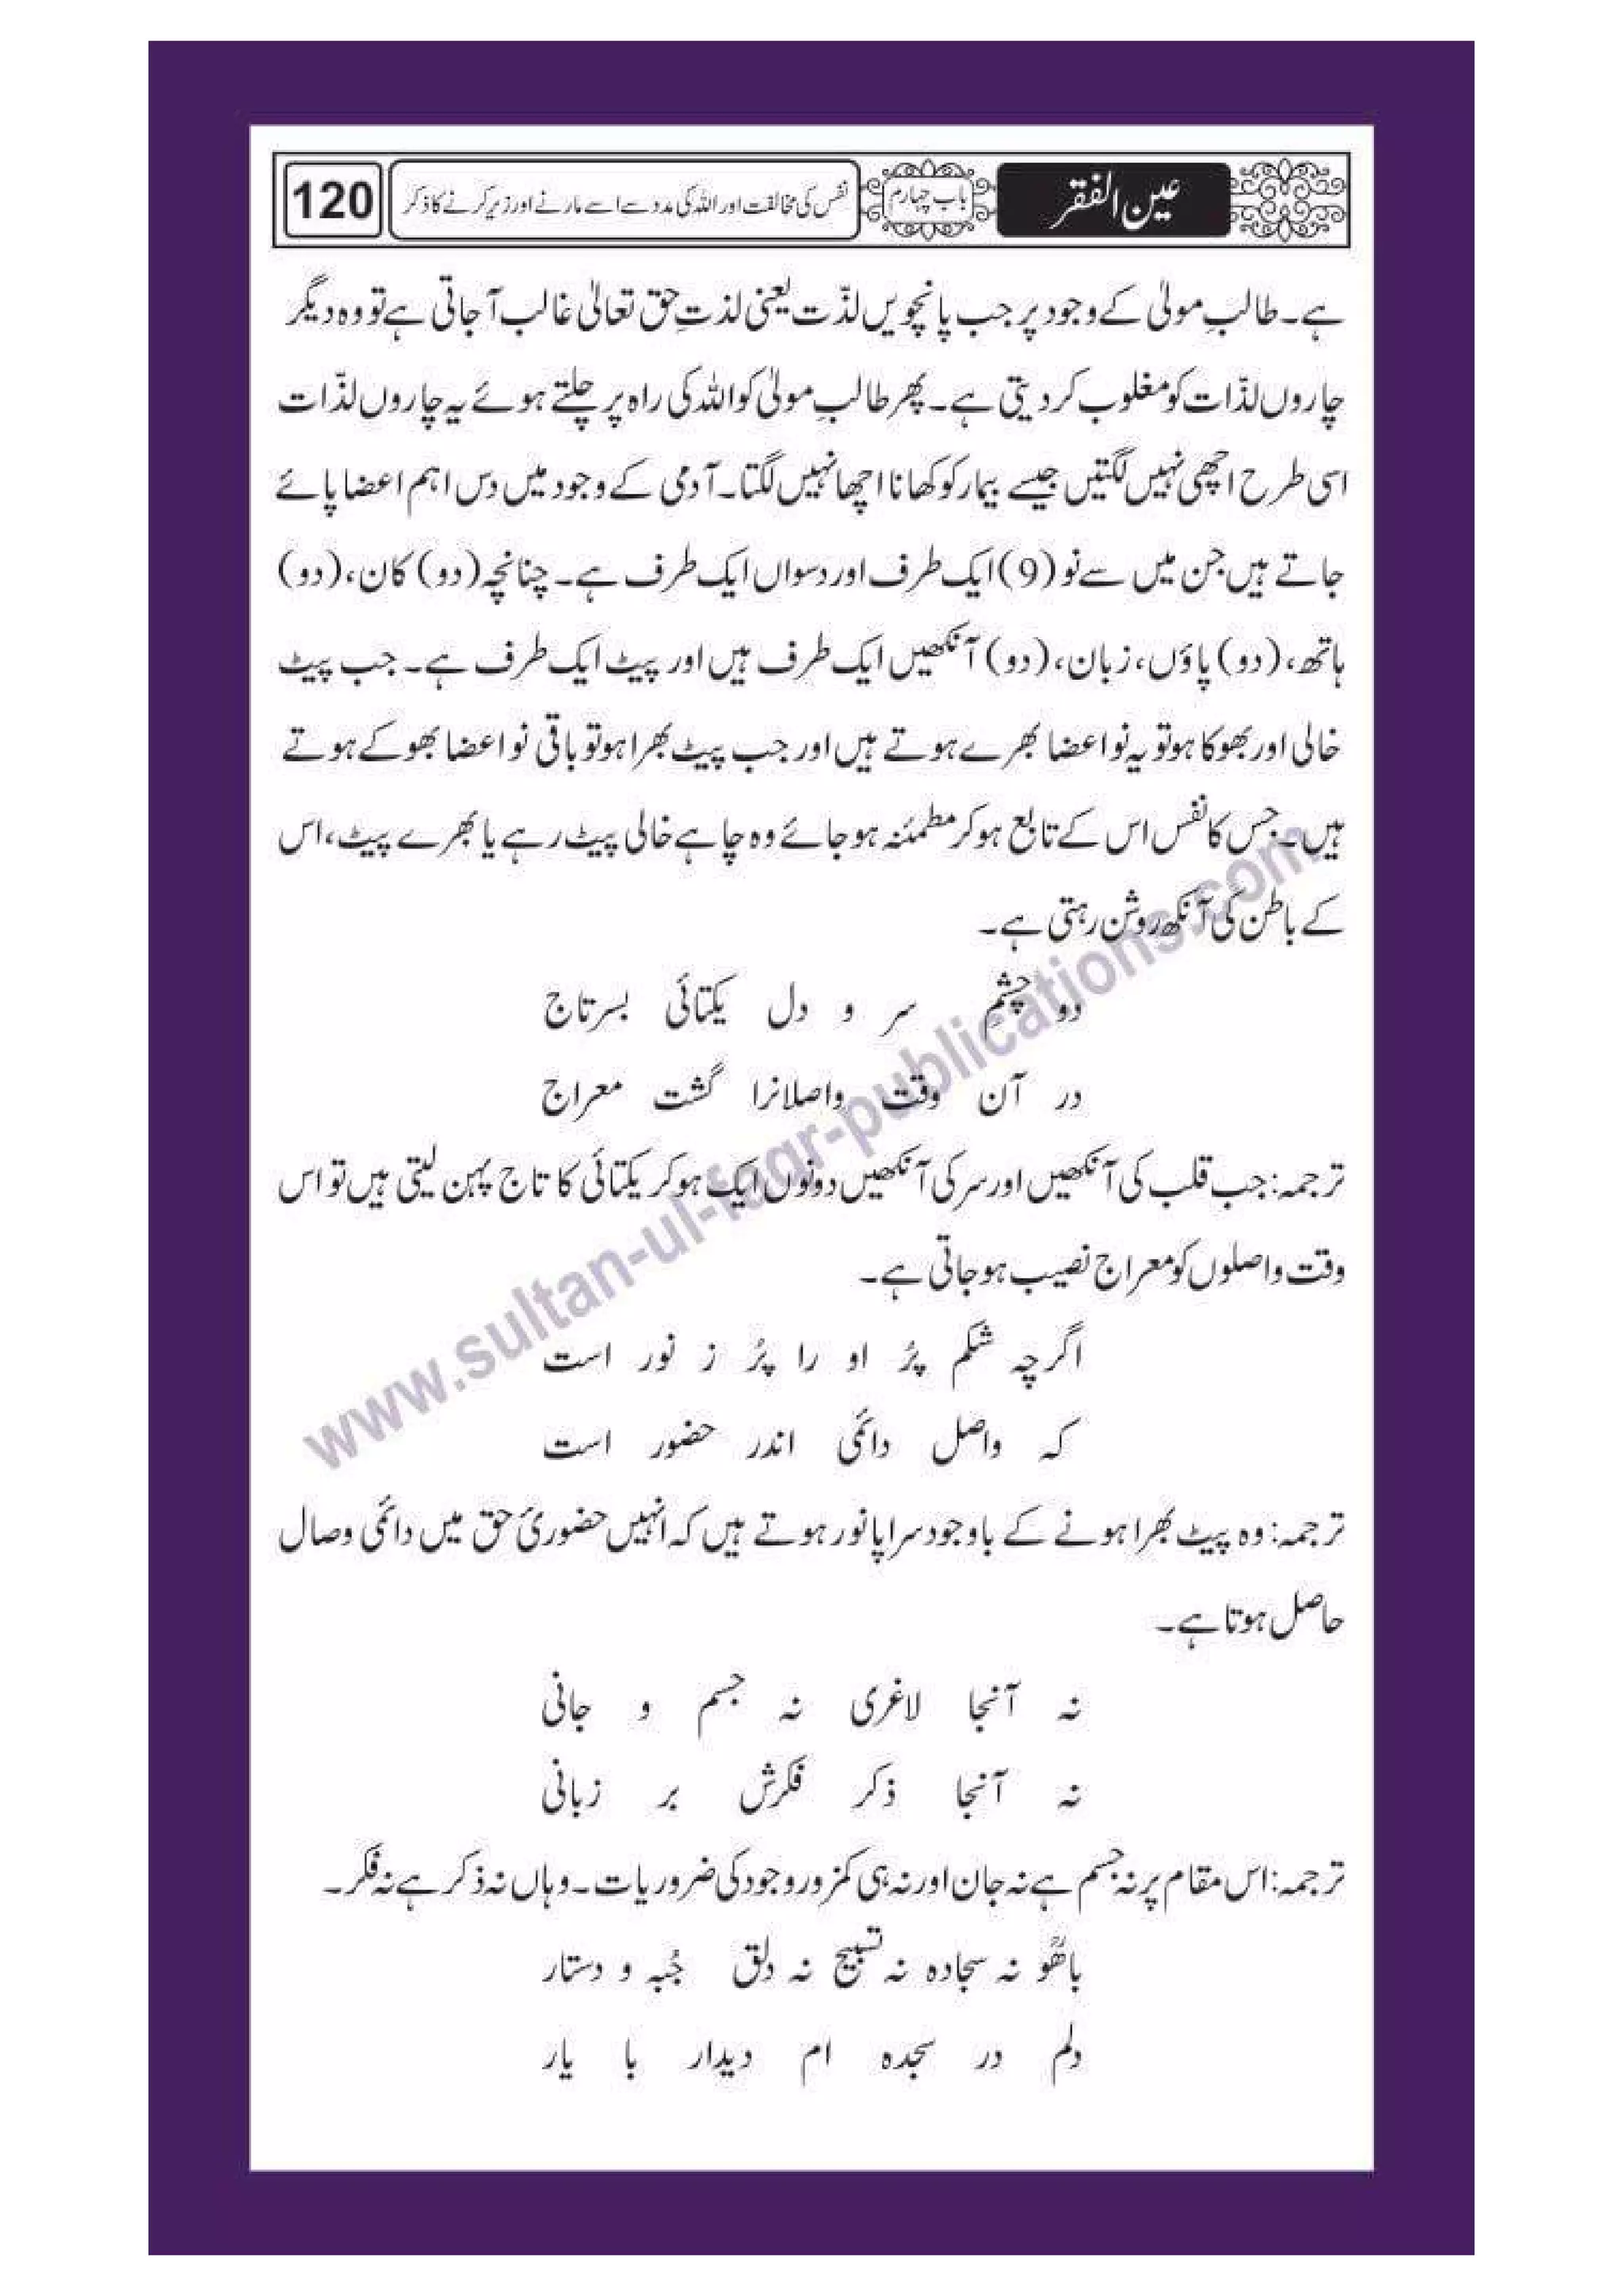 عین الفقر
باب چہارم
نفس کی مخالفت اور اللہ کی مدد سے اسے مارنے اور زیر کرنے کا ذکر
120
ہے۔ طالبِ مولیٰ کے وجود پر جب پانچویں لذّت یعنی لذتِ حق تعالیٰ غالب آ جاتی ہے تو وہ دیگر
چاروں لذّات کو مغلوب کر دیتی ہے۔ پھر طالبِ مولیٰ کو اللہ کی راہ پر چلتے ہوئے یہ چاروں لذّات
اسی طرح اچھی نہیں لگتیں جیسے بیمار کو کھانا اچھا نہیں لگتا۔ آدمی کے وجود میں دس اہم اعضا پائے
جاتے ہیں جن میں سے نو (9) ایک طرف اور دسواں ایک طرف ہے۔ چنانچہ (دو) کان، (دو)
ہاتھ، (دو) پاؤں، زبان، (دو) آنکھیں ایک طرف ہیں اور پیٹ ایک طرف ہے۔ جب پیٹ
خالی اور بھوکا ہو تو یہ نو اعضا بھرے ہوتے ہیں اور جب پیٹ بھرا ہو تو باقی نو اعضا بھوکے ہوتے
ہیں۔ جس کا نفس اس کے تابع ہو کر مطمئنہ ہو جائے وہ چاہے خالی پیٹ رہے یا بھرے پیٹ، اس
کے باطن کی آنکھ روشن رہتی ہے۔
دو چشمِ سر و دل یکتائی بسرتاج
در آن وقت واصلانرا گشت معراج
ترجمہ: جب قلب کی آنکھیں اور سر کی آنکھیں دونوں ایک ہو کر یکتائی کا تاج پہن لیتی ہیں تو اس
وقت واصلوں کو معراج نصیب ہو جاتی ہے۔
اگرچہ شکم پُر او را پُر ز نور است
کہ واصل دائمی اندر حضور است
ترجمہ: وہ پیٹ بھرا ہونے کے باوجود سراپا نور ہوتے ہیں کہ انہیں حضوریٔ حق میں دائمی وصال
حاصل ہوتا ہے۔
نہ آنجا لاغری نہ جسم و جانی
نہ آنجا ذکر فکرش بر زبانی
ترجمہ: اس مقام پر نہ جسم ہے نہ جان اور نہ ہی کمزور وجود کی ضروریات۔ وہاں نہ ذکر ہے نہ فکر۔
باھُوؒ نہ سجادہ نہ تسبیح نہ دلق جُبہ و دستار
دلم در سجدہ ام دیدار با یار
www.sultan-ul-faqr-publications.com